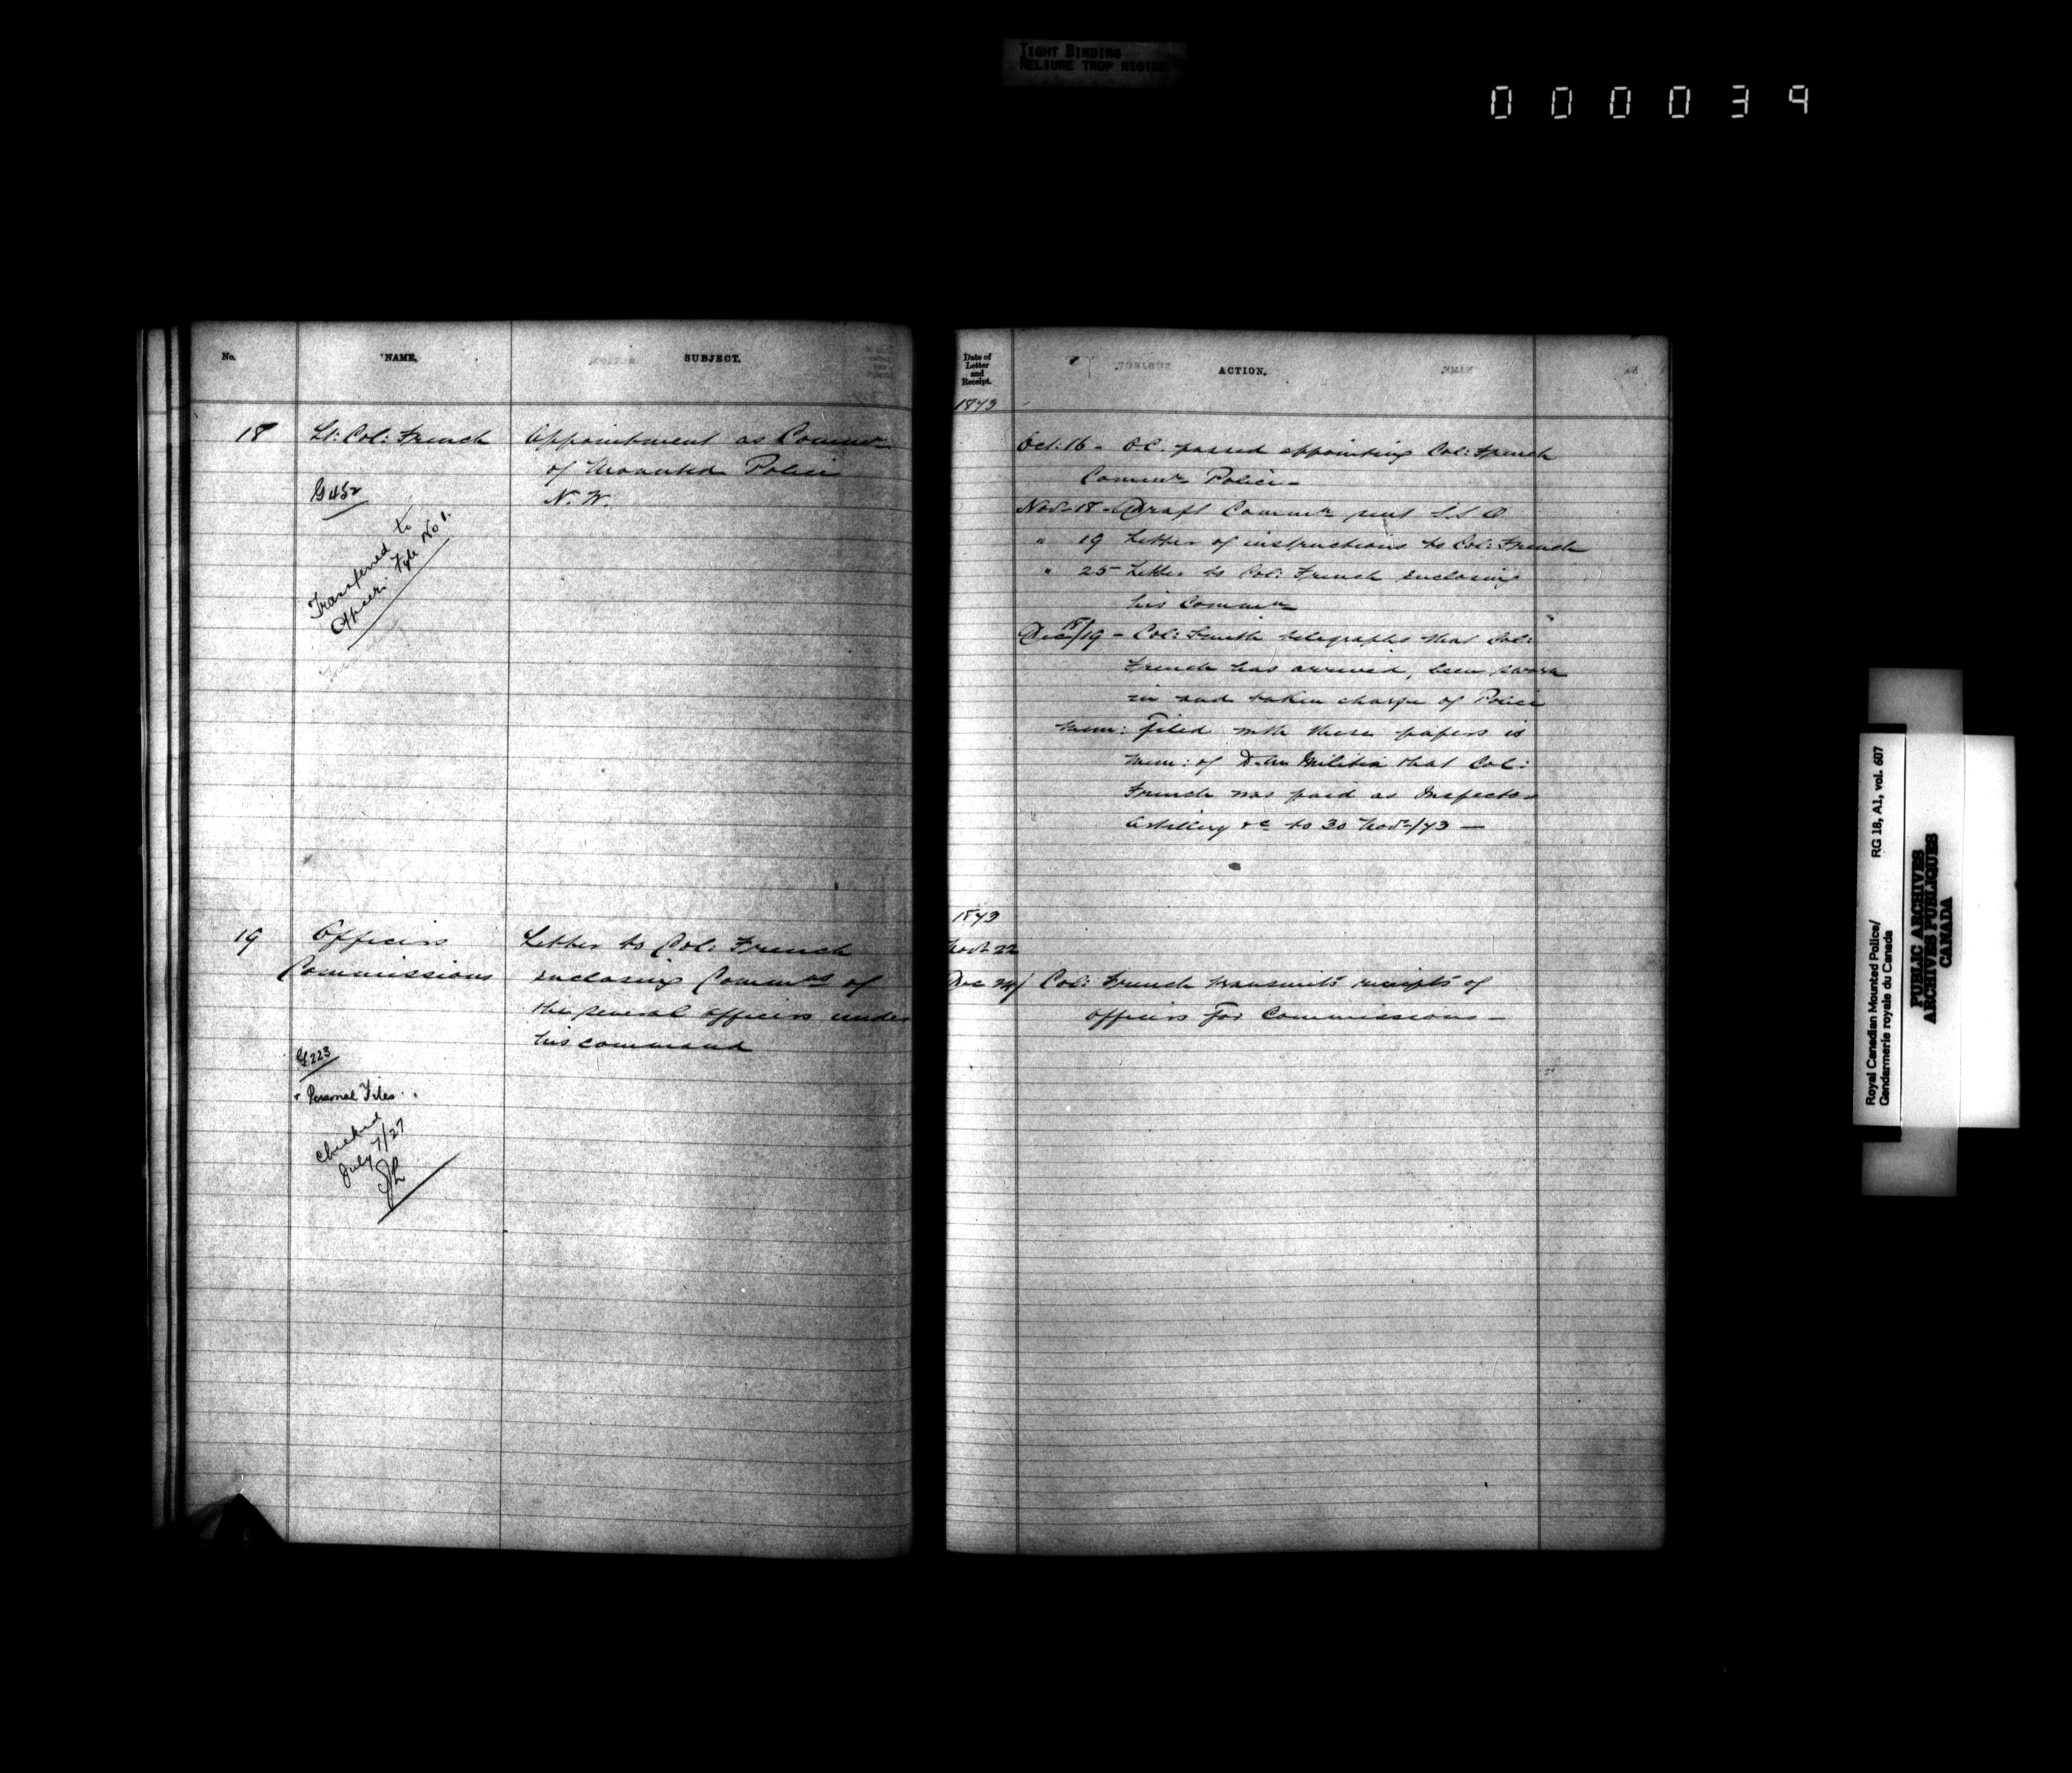 TIGHT BINDING
RELIURE TROP RIGIDE
000039
No.
NAME.
SUBJECT.
18
Lt: Col: French
Appointment as Commr
of Mounted Police
N. W.
G 452
Transferred to
Officers File No 1.
19
Officers
Commissions
Letter to Col: French
enclosing Commns of
the several officers under
his command
G 223
" Personal Files "
Checked
July 7/27
Date of
Letter
and
Receipt.
ACTION.
1873
Oct: 16 - O.C. passed appointing Col: French
Commr Police -
Nov. 18 - Draft Commn sent S.S.O.
" 19 Letter of instructions to Col: French
" 25 - Letter to Col: French enclosing
his Commn
Dec 18/19 - Col: Smith telegraphs that Col:
French has arrived, been sworn
in and taken charge of Police
Mem: filed with these papers is
Mem: of Militia that Col:
French was paid as Inspector
Artillery &c to 30 Nov/73 —
1873
Nov. 22
Dec 24/ Col: French transmits receipts of
officers for Commissions -
Royal Canadian Mounted Police/
Gendarmerie royale du Canada
RG 18, A1, vol. 607
PUBLIC ARCHIVES
ARCHIVES PUBLIQUES
CANADA